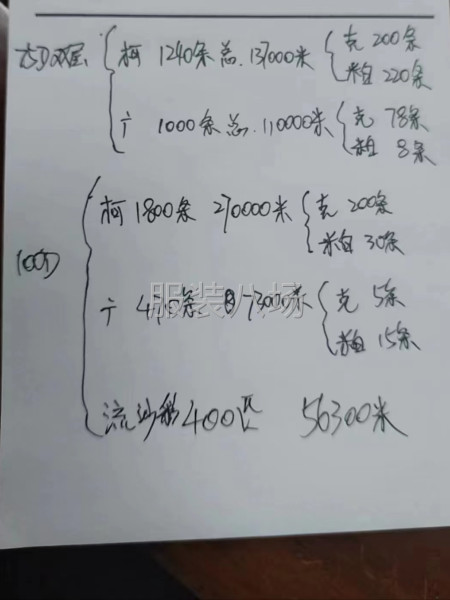 75D双层
柯 1240条 总.137000米
克 200条
米白 220条
广 1000条 总.110000米
克 78条
米白 8条
100D
柯 1800条 270000米
克 200条
米白 30条
广 470条 73000米
克 5条
米白 15条
流沙彩 400匹 56300米
服装八场